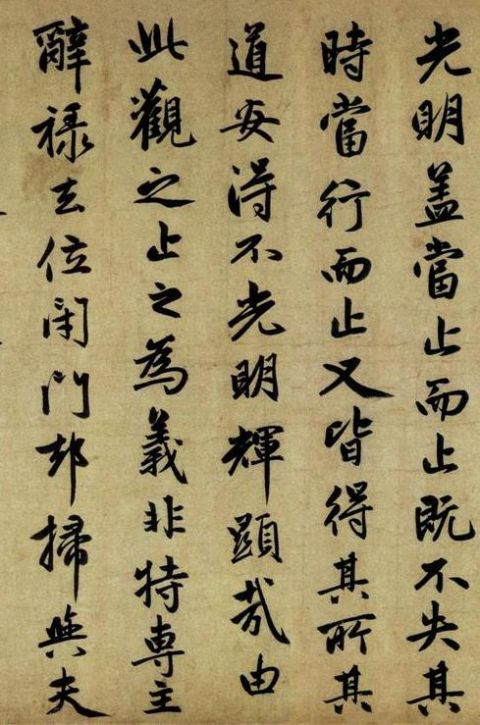 光明盖當止而止既不失其
時當行而止又皆得其所其
道安得不光明輝顯哉由
此觀之止之為義非特専主
辭禄去位閉門却掃與夫